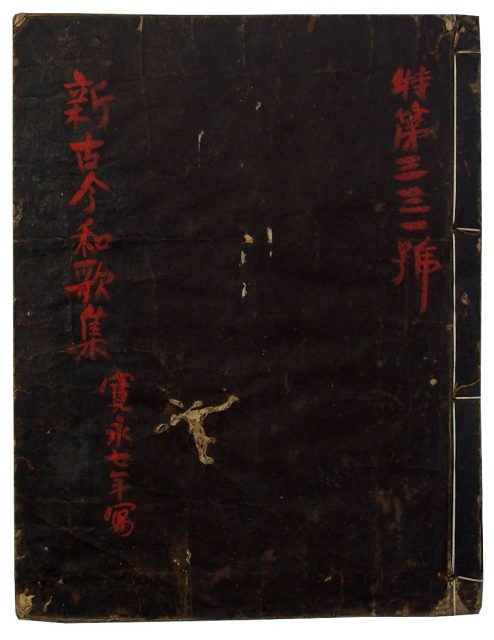 特第三三一號
新古今和歌集
寛永七年寫